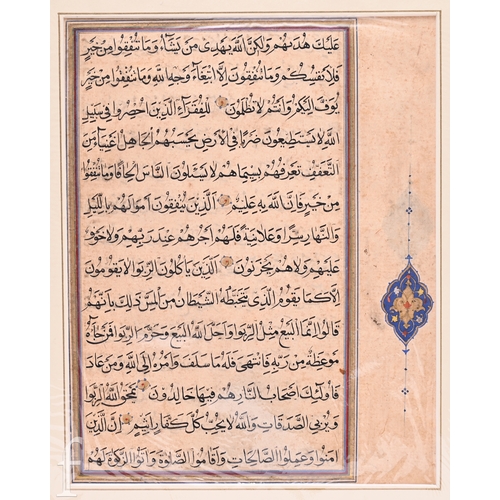 عليك هديهم ولكن الله يهدى من يشاء وما تنفقوا من خير
فلانفسكم وما تنفقون الا ابتغاء وجه الله وما تنفقوا من خير
يوف اليكم وانتم لا تظلمون للفقراء الذين احصروا فى سبيل
الله لا يستطيعون ضربا فى الارض يحسبهم الجاهل اغنياء من
التعفف تعرفهم بسيماهم لا يسئلون الناس الحافا وما تنفقوا
من خير فان الله به عليم الذين ينفقون اموالهم بالليل
والنهار سرا وعلانية فلهم اجرهم عند ربهم ولا خوف
عليهم ولا هم يحزنون الذين ياكلون الربوا لا يقومون
الا كما يقوم الذى يتخبطه الشيطان من المس ذلك بانهم
قالوا انما البيع مثل الربوا واحل الله البيع وحرم الربوا فمن جاءه
موعظة من ربه فانتهى فله ما سلف وامره الى الله ومن عاد
فاولئك اصحاب النار هم فيها خالدون يمحق الله الربوا
ويربى الصدقات والله لا يحب كل كفار اثيم ان الذين
امنوا وعملوا الصالحات واقاموا الصلوة واتوا الزكوة لهم